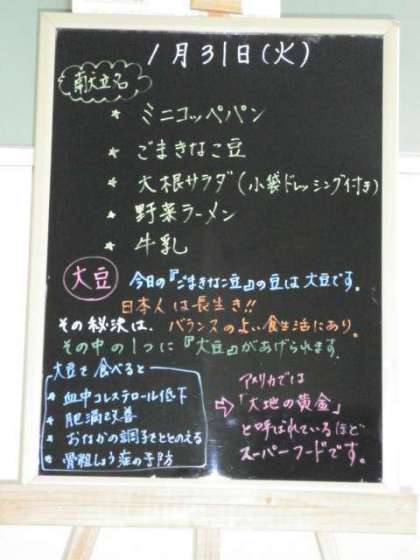 1月31日(火)
献立名
* ミニコッペパン
* ごまきなこ豆
* 大根サラダ(小袋ドレッシング付き)
* 野菜ラーメン
* 牛乳
大豆
今日の『ごまきなこ豆』の豆は大豆です。
日本人は長生き!!
その秘決は、バランスの良い食生活にあり。
その中の1つに『大豆』があげられます。
大豆を食べると
* 血中コレステロール低下
* 肥満改善
* おなかの調子をととのえる
* 骨粗しょう症の予防
アメリカでは
⇨「大地の黄金」
と呼ばれているほど
スーパーフードです。